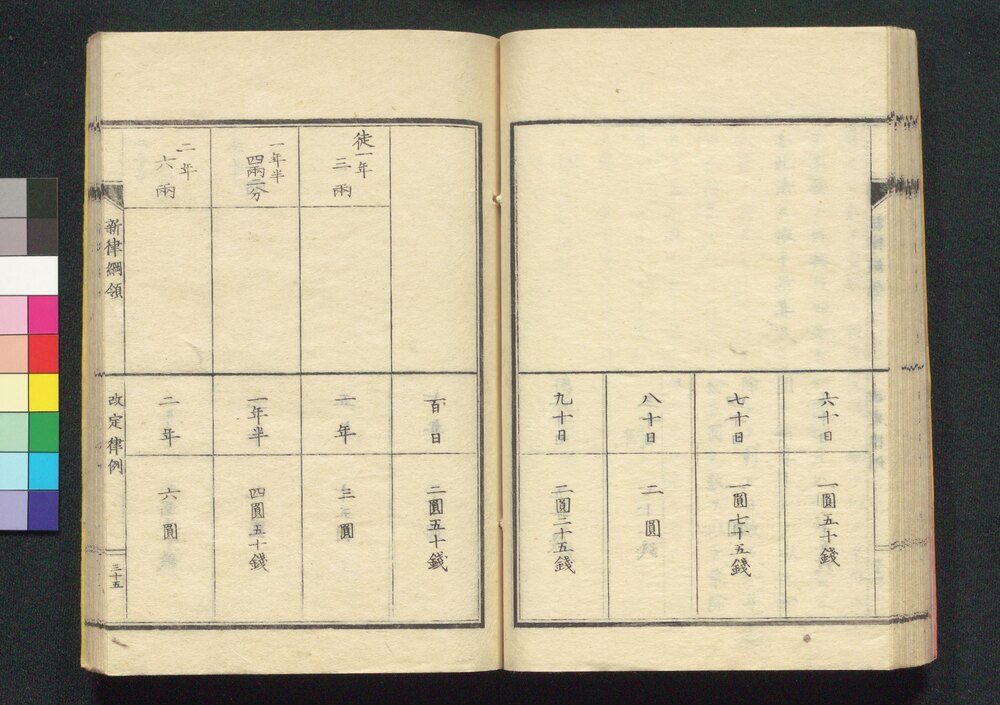 六十日
一圓五十錢
七十日
一圓七十五錢
八十日
二圓
九十日
二圓二十五錢
百日
二圓五十錢
徒一年
三兩
一年
三圓
一年半
四兩二分
一年半
四圓五十錢
二年
六兩
二年
六圓
新律綱領
改定律例
三十五